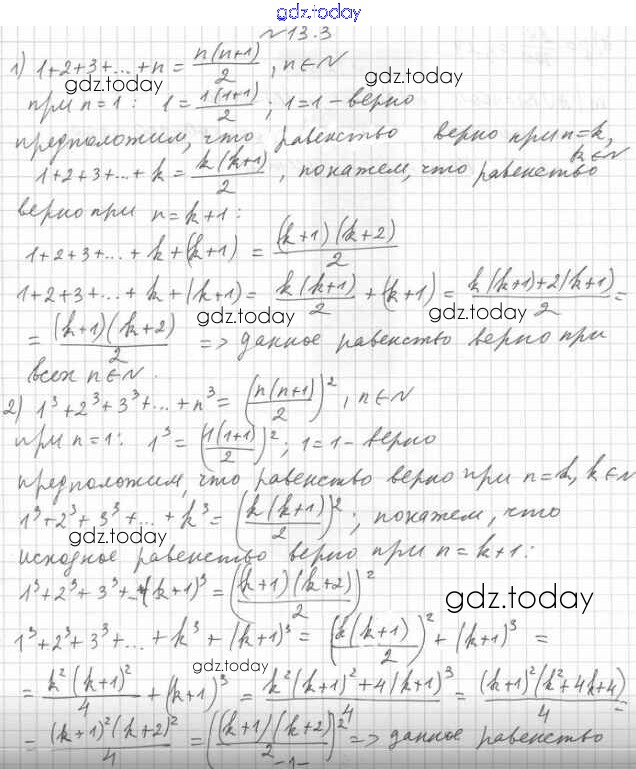 gdz.today
№13.3
1) 1+2+3+...+n = n(n+1)/2, n∈N
gdz.today gdz.today
при n=1: 1 = 1(1+1)/2; 1=1 - верно
предположим, что равенство верно при n=k,
k∈N
1+2+3+...+k = k(k+1)/2, покажем, что равенство
верно при n=k+1:
1+2+3+...+k+(k+1) = (k+1)(k+2)/2
1+2+3+...+k+(k+1) = k(k+1)/2 + (k+1) = k(k+1)+2(k+1)/2 =
gdz.today gdz.today
= (k+1)(k+2)/2 => данное равенство верно при
всех n∈N.
2) 1³+2³+3³+...+n³ = (n(n+1)/2)², n∈N
при n=1: 1³ = (1(1+1)/2)²; 1=1 - верно
предположим, что равенство верно при n=k, k∈N
1³+2³+3³+...+k³ = (k(k+1)/2)²; покажем, что
gdz.today
исходное равенство верно при n=k+1:
1³+2³+3³+...+(k+1)³ = ((k+1)(k+2)/2)²
gdz.today
1³+2³+3³+...+k³+(k+1)³ = (k(k+1)/2)² + (k+1)³ =
gdz.today
= k²(k+1)²/4 + (k+1)³ = k²(k+1)²+4(k+1)³/4 = (k+1)²(k²+4k+4)/4 =
= (k+1)²(k+2)²/4 = ((k+1)(k+2)/2)² => данное равенство
-1-